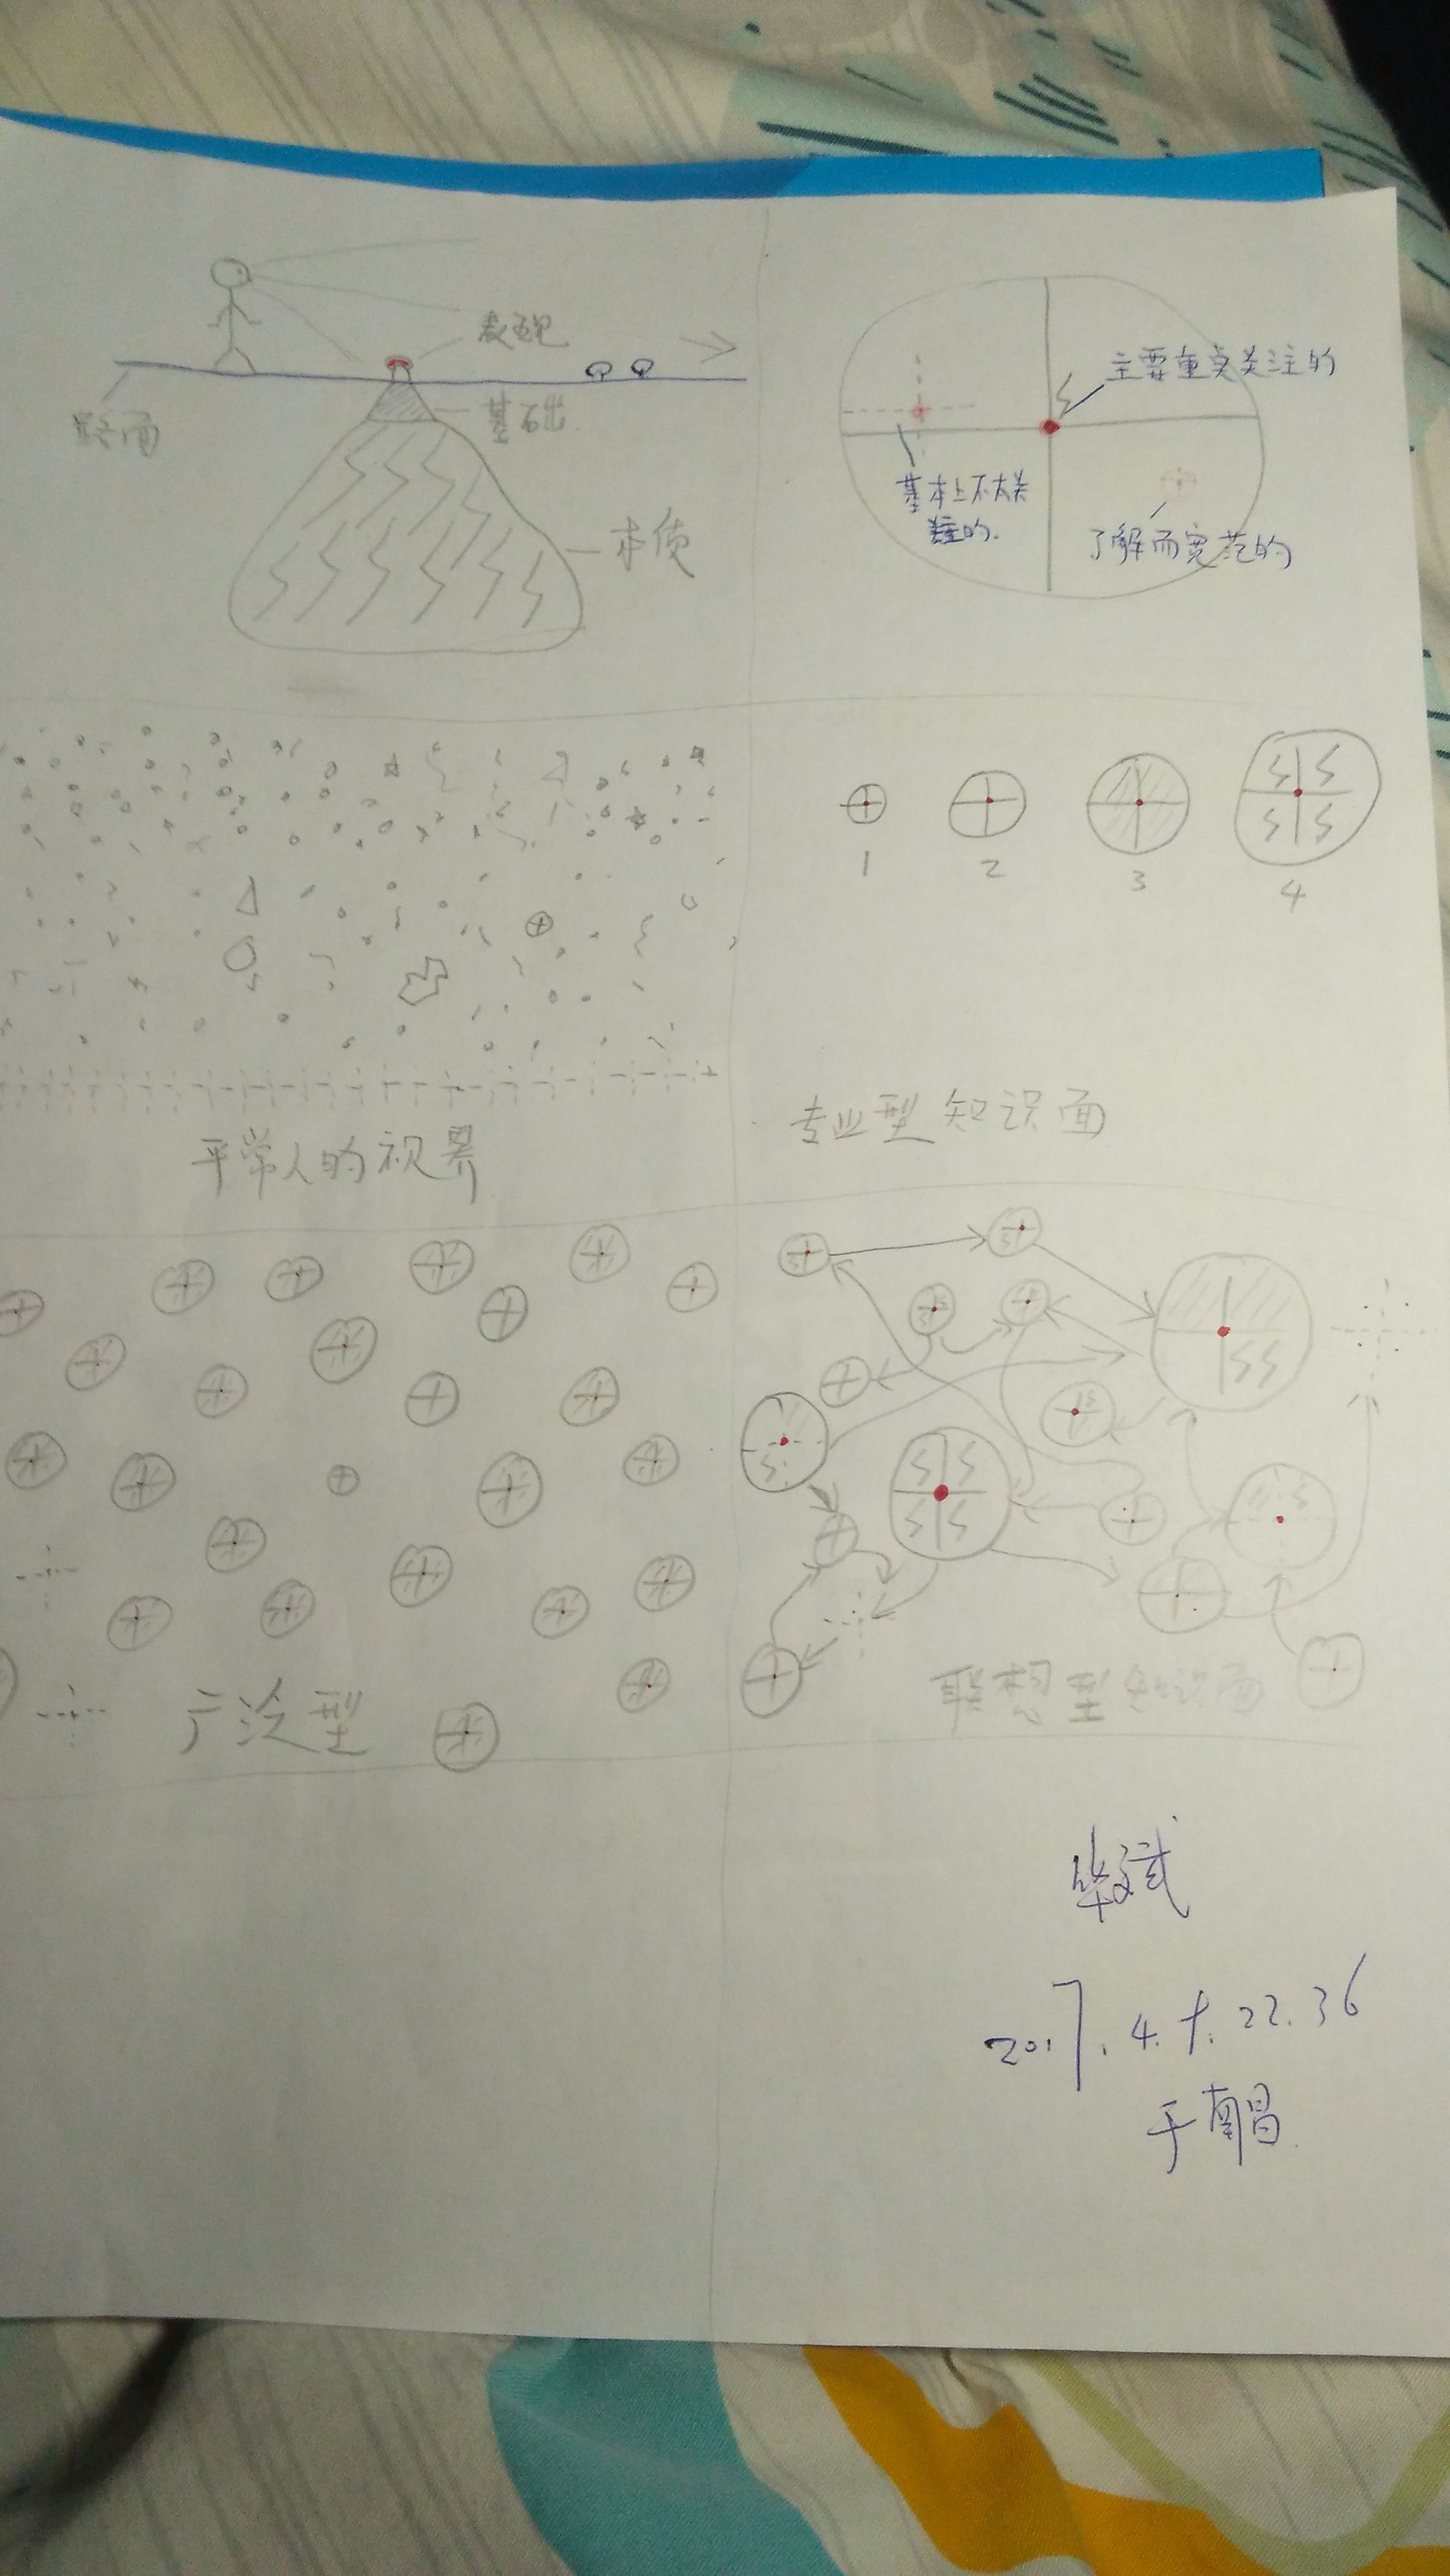 表现
路面
基础
本质
主要重点关注的
基本上不太关
注的.
了解而宽范的
1
2
3
4
平常人的视界
专业型知识面
广泛型
联想型知识面
2017.4.
22.36
于南昌